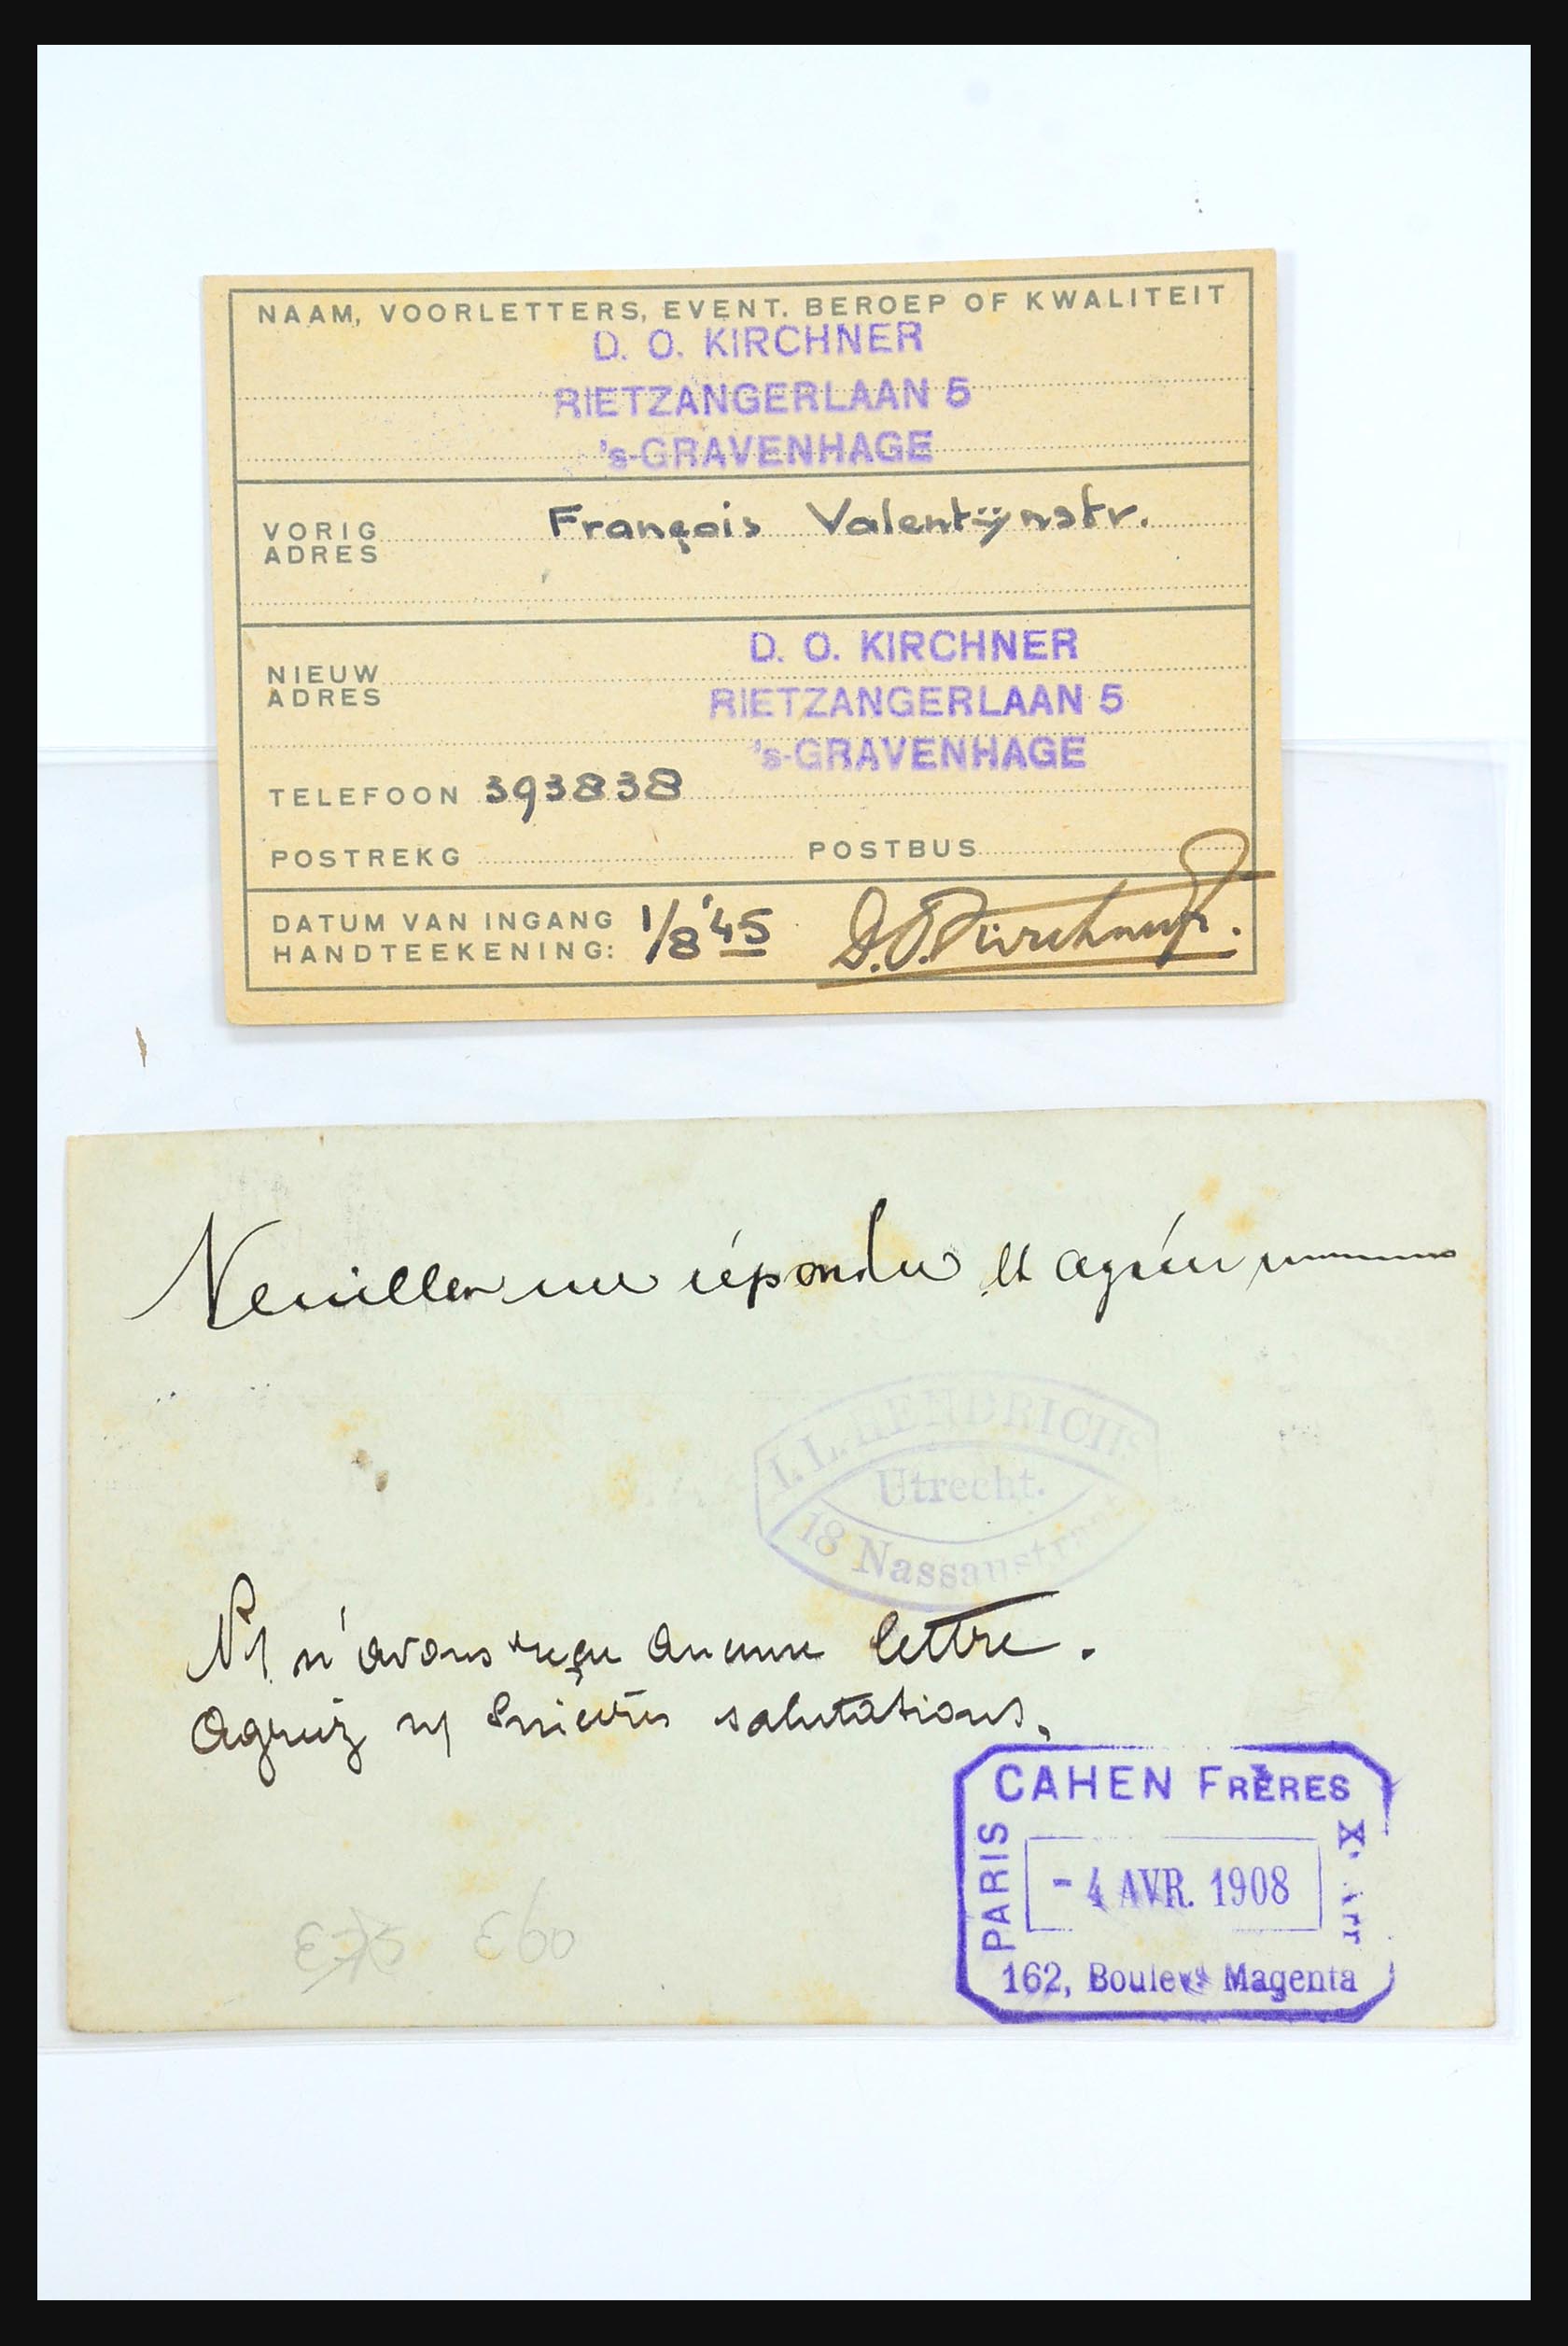 NAAM, VOORLETTERS, EVENT. BEROEP OF KWALITEIT
D. O. KIRCHNER
RIETZANGERLAAN 5
's-GRAVENHAGE
VORIG ADRES François Valentijnstr.
NIEUW ADRES
D. O. KIRCHNER
RIETZANGERLAAN 5
's-GRAVENHAGE
TELEFOON 393838
POSTREKG POSTBUS
DATUM VAN INGANG 1/8 '45
HANDTEEKENING: D.O. Kirchner
Veuillez me répondre et agréer
HENDRICHS
Utrecht.
18 Nassaustraat
n'avons reçu aucune lettre.
Agréez sincères salutations.
CAHEN FRÈRES
PARIS
X. Arr
- 4 AVR. 1908
162, Boulev. Magenta